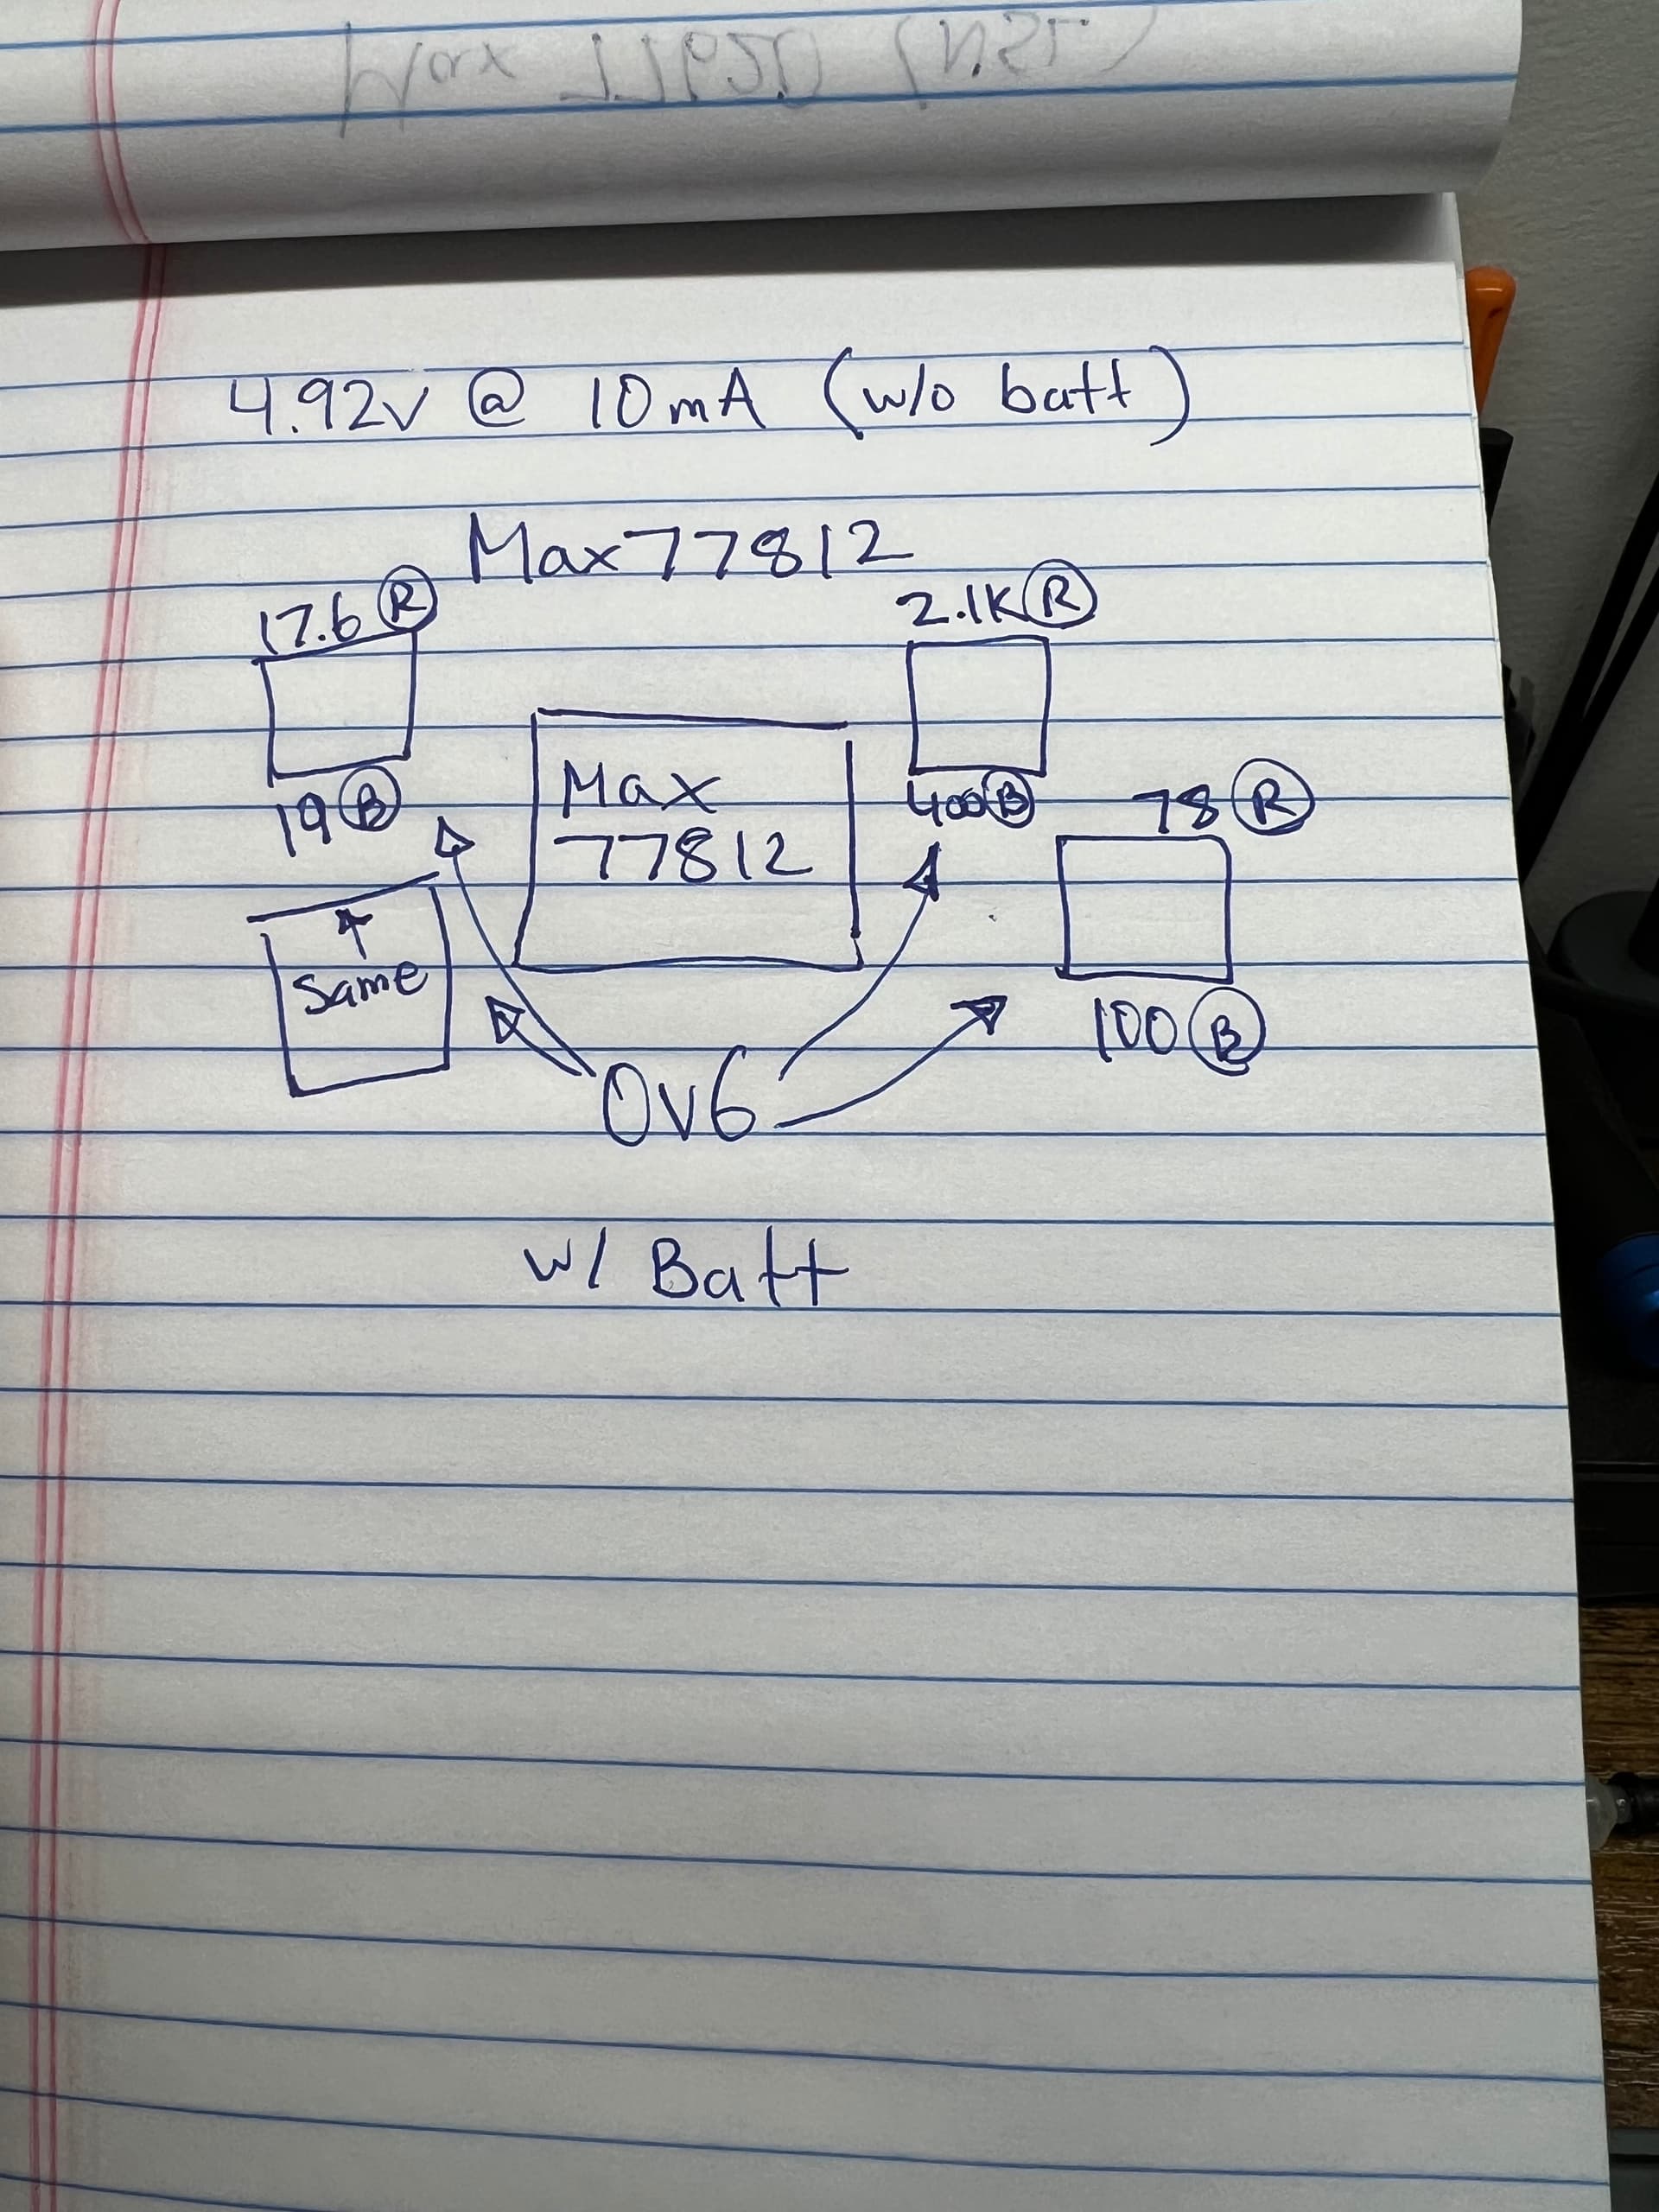 4.92v @ 10mA (w/o batt)
Max77812
17.6 R
2.1K R
19 B
Max
77812
400 B
78 R
Same
100 B
0v6
w/ Batt